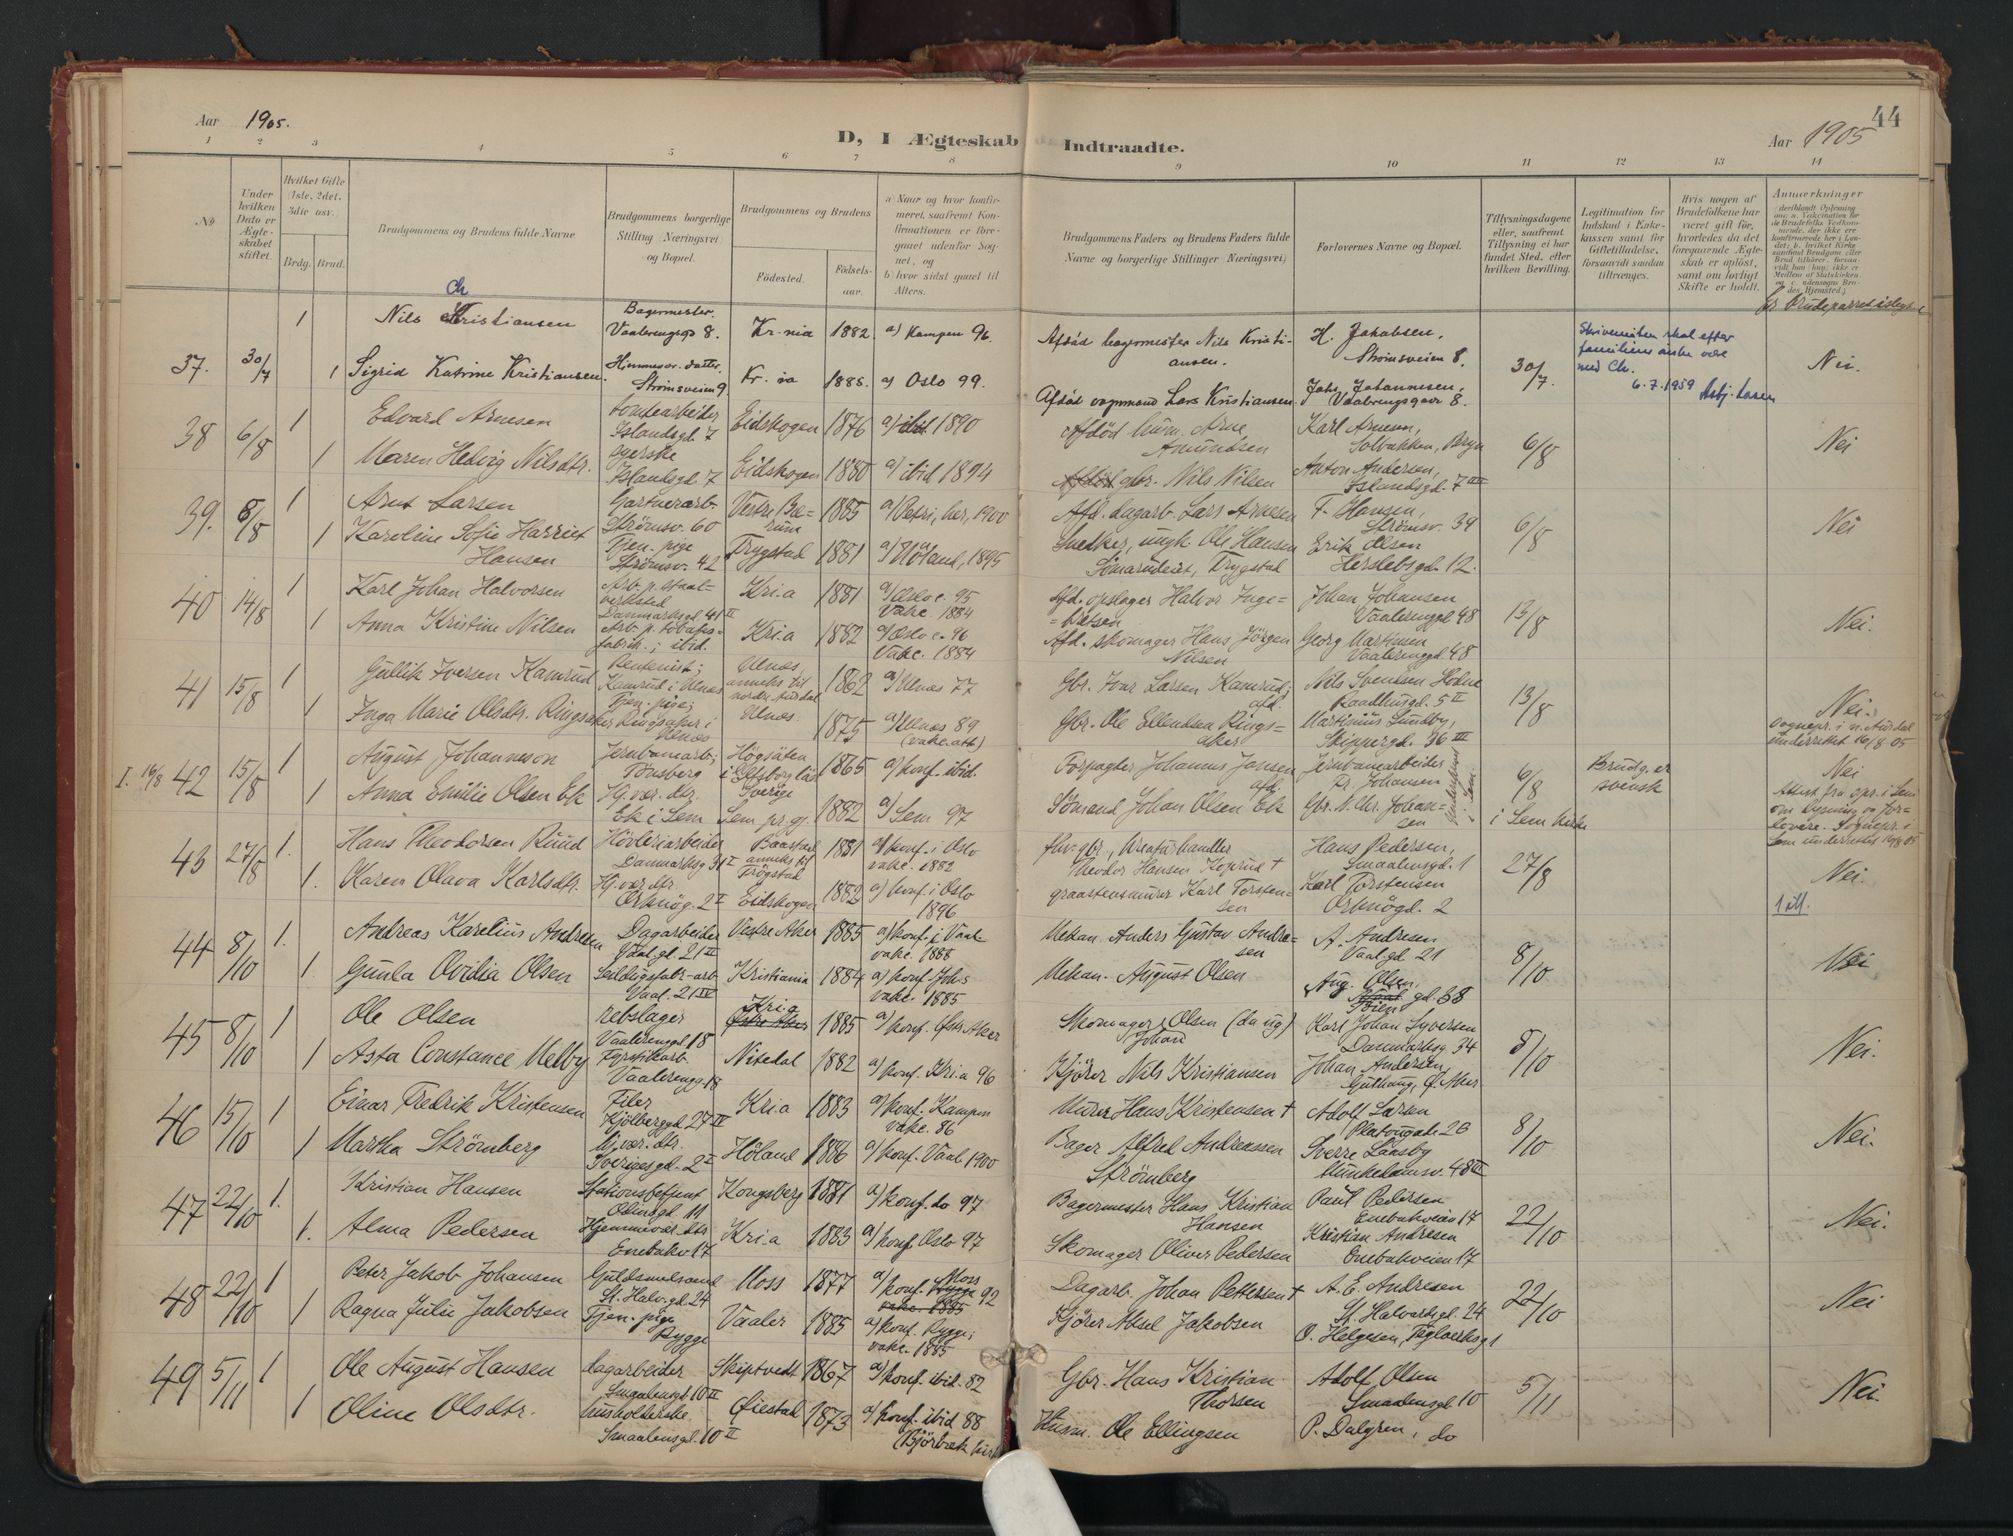 Aar 1905.
D, I Ægteskab Indtraadte.
Aar 1905
44
1 2 3 4 5 6 7 8 9 10 11 12 13 14
No
Under hvilken Dato er Ægteskabet stiftet.
Hvilket Gifte (1ste, 2det, 3die osv.)
Brdg. Brud.
Brudgommens og Brudens fulde Navne
Brudgommens borgerlige Stilling (Næringsvei) og Bopæl.
Brudgommens og Brudens
Fødested. Fødselsaar.
a) Naar og hvor konfirmeret, saafremt Konfirmationen er foregaaet udenfor Sognet, og
b) hvor sidst gaaet til Alters.
Brudgommens Faders og Brudens Faders fulde Navne og borgerlige Stillinger (Næringsvei)
Forlovernes Navne og Bopæl.
Tillysningsdagene eller, saafremt Tillysning ei har fundet Sted, efter hvilken Bevilling.
Legitimation for Indskud i Enkekassen samt for Giftetilladelse, forsaavidt saadan tiltrænges.
Hvis nogen af Brudefolkene har været gift før, hvorledes da det foregaaende Ægteskab er opløst, samt om lovligt Skifte er holdt.
Anmærkninger
Er Brudeparret i slegt
37. 30/7 1 Ch Nils Kristiansen Bagermester. Vaalerengsgd 8. Kr.nia 1882 a) Kampen 96. Afdød bagermester Nils Kristiansen. H. Jakobsen, Strømsveien 8. 30/7. Skrivemåten skal efter familiens ønske være med Ch. 6.7.1959 Nei.
1 Sigrid Katrine Kristiansen. Hjemmevær. datter. Strømsveien 9 Kr. ia 1885. a) Oslo 99. Afdød vognmand Lars Kristiansen. Johs. Johannesen, Vaalerengsgaten 8.
38 6/8 1 Edvard Arnesen tomtearbeider Islandsgd. 7 Eidskogen 1876 a) ibid 1890 Afdød husm. Arne Amundsen Karl Arnesen, Solbakken, Bryn 6/8 Nei
1 Maren Hedvig Nilsdtr. syerske Islandsgd. 7 Eidskogen 1880 a) ibid 1894 gbr. Nils Nilsen Anton Andersen, Islandsgd. 7 III
39. 8/8 1 Arnt Larsen Gartnerarb. Strømsv. 60 Vestre Bærum 1885 a) Petri, her, 1900 Afd. dagarb. Lars Arnesen F. Hansen, Strømsv. 39 6/8 Nei
1 Karoline Sofie Harriet Hansen Tjen. pige Strømsv. 42 Trygstad 1881 a) Høland, 1895 Snedker, ungk. Ole Hansen Sømarudeiet, Trygstad Erik Olsen Herslebsgd. 12.
40 14/8 1 Karl Johan Halvorsen Arb. p. staalverksted Danmarksgd 41 II Kri.a 1881 a) Oslo c. 95 Vakc. 1884 Afd. opslager Halvor Ingebretsen Johan Johansen Vaalerenggd 48 13/8 Nei.
1 Anna Kristine Nilsen Arb. p. tobaksfabrik. i ibid. Kria 1882 a) Oslo c. 96 Vakc. 1884 Afd. skomager Hans Jörgen Nilsen Georg Martinsen Vaalerenggd 48
41 15/8 1 Gullik Iversen Kamrud Rentenist; Kamrud i Ulnæs Ulnæs, anneks til nordre Aurdal 1862 a) Ulnæs 77 Gbr. Ivar Larsen Kamrud; afd. Nils Svendsen Hodne Raadhusgd. 5 II 13/8 Nei. Sognepr. i n. Aurdal underrettet 16/8 05
1 Inga Marie Olsdtr. Ringsaker Tjen. pige; Ringsaker i Ulnæs Ulnæs. 1875 a) Ulnæs 89 (vakc. att) Gbr. Ole Ellendsen Ringsaker Martinius Lundby, Skippergd. 36 III
I. 16/8 42 15/8 1 August Johannesson Jernbanearb; Tønsberg Högsäten i Elfsborg län Sverige 1865 a) konf. ibid. Forpagter Johannes Jansen afd. Jernbanearbeider Fr. Johansen 6/8 i Sem kirke Brudg. er svensk Nei
1 Anna Emilie Olsen Ek Hj. vær. dtr. Ek i Sem Sem pr. gj. 1882 a) Sem 97 Sømand Johan Olsen Ek Gbr. N. Chr. Johansen Attest fra spr. i Sem om lysning og forlovere. Sognepr. i Sem underrettet 16/8 05
43 27/8 1. Hans Theodorsen Ruud Høvleriarbeider Danmarksg 31 I Baastad anneks til Trøgstad 1881 a) konf. i Oslo vakc. 1882 fhv. gbr., kreaturhandler Theodor Hansen Koprud + Hans Pedersen, Smaalensgd. 1 27/8 Nei.
1. Karen Olava Karlsdtr. Hj. vær. dtr. Orknög. 2 I Eidskogen 1882 a) konf. i Oslo 1896 graastensmurer Karl Torstensen Karl Torstensen Orknögd. 2 1 ill.
44 8/10 1. Andreas Karelius Andresen Dagarbeider Vaal.gd. 21 II Vestre Aker 1885 a) konf. i Vaal. vakc. 1888 Mekan. Anders Gustav Andresen A. Andresen Vaal.gd. 21 8/10 Nei
1. Gunla Ovidia Olsen Seildugsfabr.-arb Vaal. 21 IV Kristiania 1884 a) konf. Johs vakc. 1885 Mekan. August Olsen Aug. Olsen, gd. 38
45 8/10 1 Ole Olsen rebslager Vaalerenggd. 18 Kria Østre Aker 1885 a) konf. Østr. Aker Skomager Johan Olsen (da ug) Karl Johan Syversen Danmarksg. 34 8/10 Nei.
1 Asta Constance Melby Fyrstikarb. Vaalerengg. 18 Nitedal 1882 a) konf. Kri.a 96 Kjører Nils Kristiansen Johan Andersen, Gulhaug, Ø. Aker
46 15/10 1 Einar Fredrik Kristensen Filer Kjölberggd. 27 IV Kria 1883 a) konf. Kampen vakc. 86 Murer Hans Kristensen + Adolf Larsen Platougade 26 8/10 Nei.
1 Martha Strömberg Hj. vær. dtr. Sverigesgd. 2 I Höland 1886 a) konf. Vaal. 1900 Bager Alfred Andreassen Strömberg Sverre Laasby Munkedamsv. 48 III
47 22/10 1. Kristian Hansen Stationsbetjent Odinsgd. 11 Kongsberg 1881 a) konf. do 97 Bagermester Hans Kristian Hansen Paul Pedersen Enebakveien 17 22/10 Nei.
1. Alma Pedersen Hjemmevær. dtr. Enebakv. 17 Kri.a 1883 a) konf. Oslo 97 Skomager Oliver Pedersen Kristian Andresen Enebakveien 17
48 22/10 1 Peter Jakob Johansen Guldsmedsvend St. Halv.gd. 24 Moss 1877 a) konf. Moss 92 vakc. 1885 Dagarb. Johan Pettersen + A. E. Andresen St. Halvardsgd. 24 22/10 Nei
1 Ragna Julie Jakobsen Tjen. pige Rygge Vaaler 1885 a) konf. Rygge; vakc. 1885 Kjører Aksel Jakobsen O. Helgesen, Teglverksgd
49 5/11 1 Ole August Hansen dagarbeider Smaalensgd. 10 II Skiptvedt 1867 a) konf. ibid. 82 Gbr. Hans Kristian Thorsen Adolf Olsen Smaalensgd. 10 5/11 Nei.
1 Oline Olsdtr. husholderske Smaalensgd. 10 II Øiestad 1873 a) konf. ibid 88 (Björbæk kirke) Husm. Ole Ellingsen P. Dalgren, do